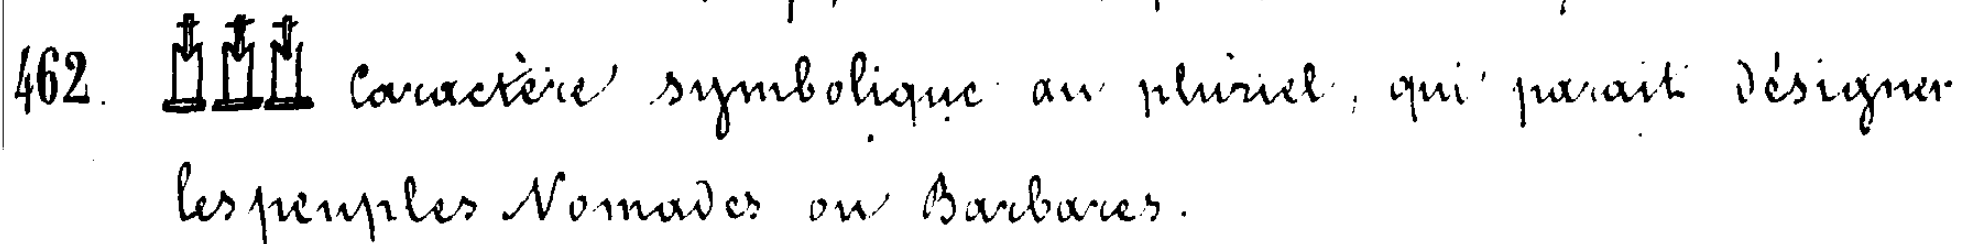 462. Caractère symbolique au pluriel, qui parait désigner
les peuples Nomades ou Barbares.